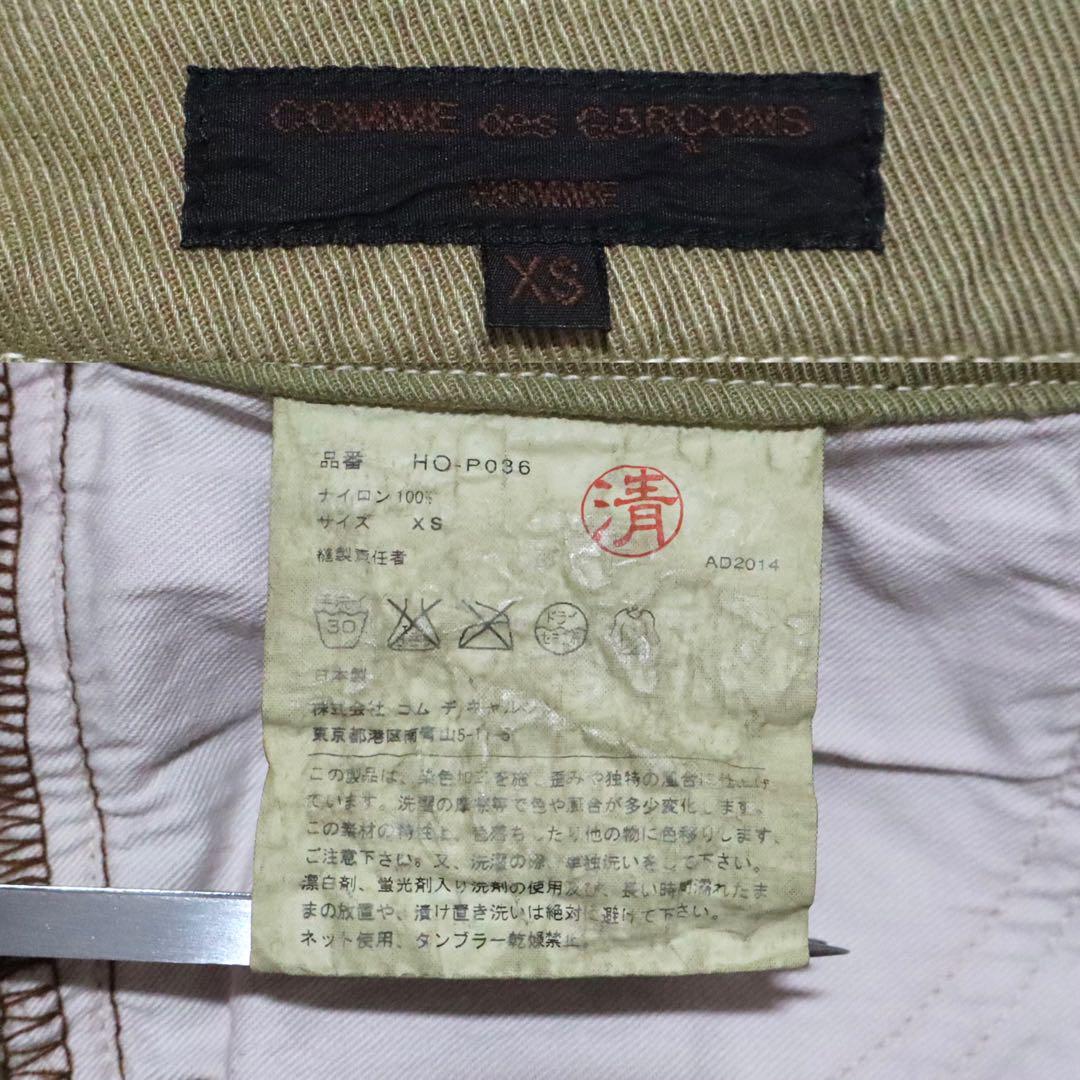 COMME des GARÇONS
HOMME
XS
品番 HO-P036
ナイロン 100%
サイズ XS
縫製責任者
清
AD2014
30
ドライ
セキユ系
日本製
株式会社 コム デ ギャルソン
東京都港区南青山5-11-5
この製品は、染色加工を施し歪みや独特の風合に仕上げ
ています。洗濯の摩擦等で色や風合が多少変化します。
この素材の特性上、色落ちしたり他の物に色移りします、
ご注意下さい。又、洗濯の際、単独洗いをして下さい。
漂白剤、蛍光剤入り洗剤の使用及び、長い時間濡れたま
まの放置や、漬け置き洗いは絶対に避けて下さい。
ネット使用、タンブラー乾燥禁止。